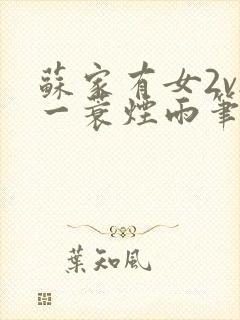 蘇家有女2v
一蓑煙雨筆
葉知風